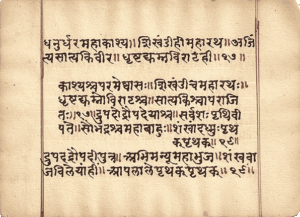 धनुर्धरमहाकाश्य॥शिखंडीहीमहारथ॥अजिं
त्यसात्यकिवीर॥धृष्टद्युम्नविराटही॥१७॥
काश्यश्चपरमेष्वासः॥शिखंडीचमहारथः॥
धृष्टद्युम्नोविराटश्च॥सात्यकिश्चापराजि
तः॥१७॥द्रुपदोद्रौपदेयाश्च॥सर्वशःपृथिवी
पते॥सौभद्रश्चमहाबाहुः॥शंखान्दध्मुःपृथ
क्पृथक्॥१८॥
द्रुपदद्रौपदीपुत्र॥अभिमन्यूमहाभुज॥शंखवा
जविलेयांही॥आपलालेपृथकपृथक॥१८॥